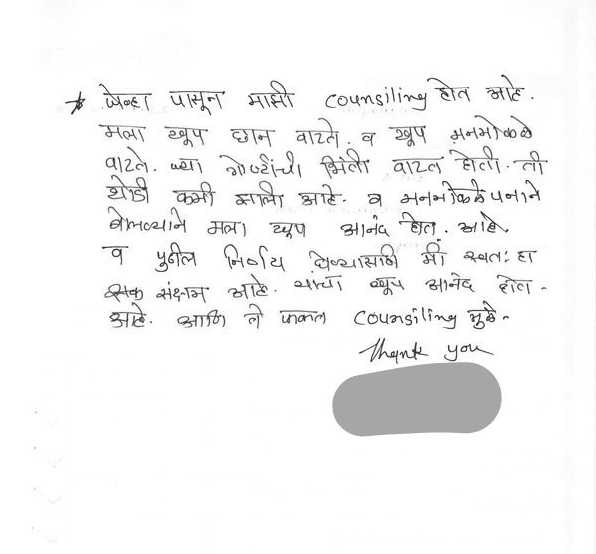 * जेव्हा पासून माझी counsiling होत आहे.
मला खूप छान वाटते. व खूप मनमोकळे
वाटते. ज्या गोष्टींची भिती वाटत होती. ती
थोडी कमी झाली आहे. व मनमोकळेपनाने
बोलव्याने मला खूप आनंद होत. आहे.
व पुढील निर्णय घेण्यासाठी मी स्वतः हा
सक्षम आहे. याचा खूप आनंद होत -
आहे. आणि ते फक्त counsiling मुळे -
Thank you